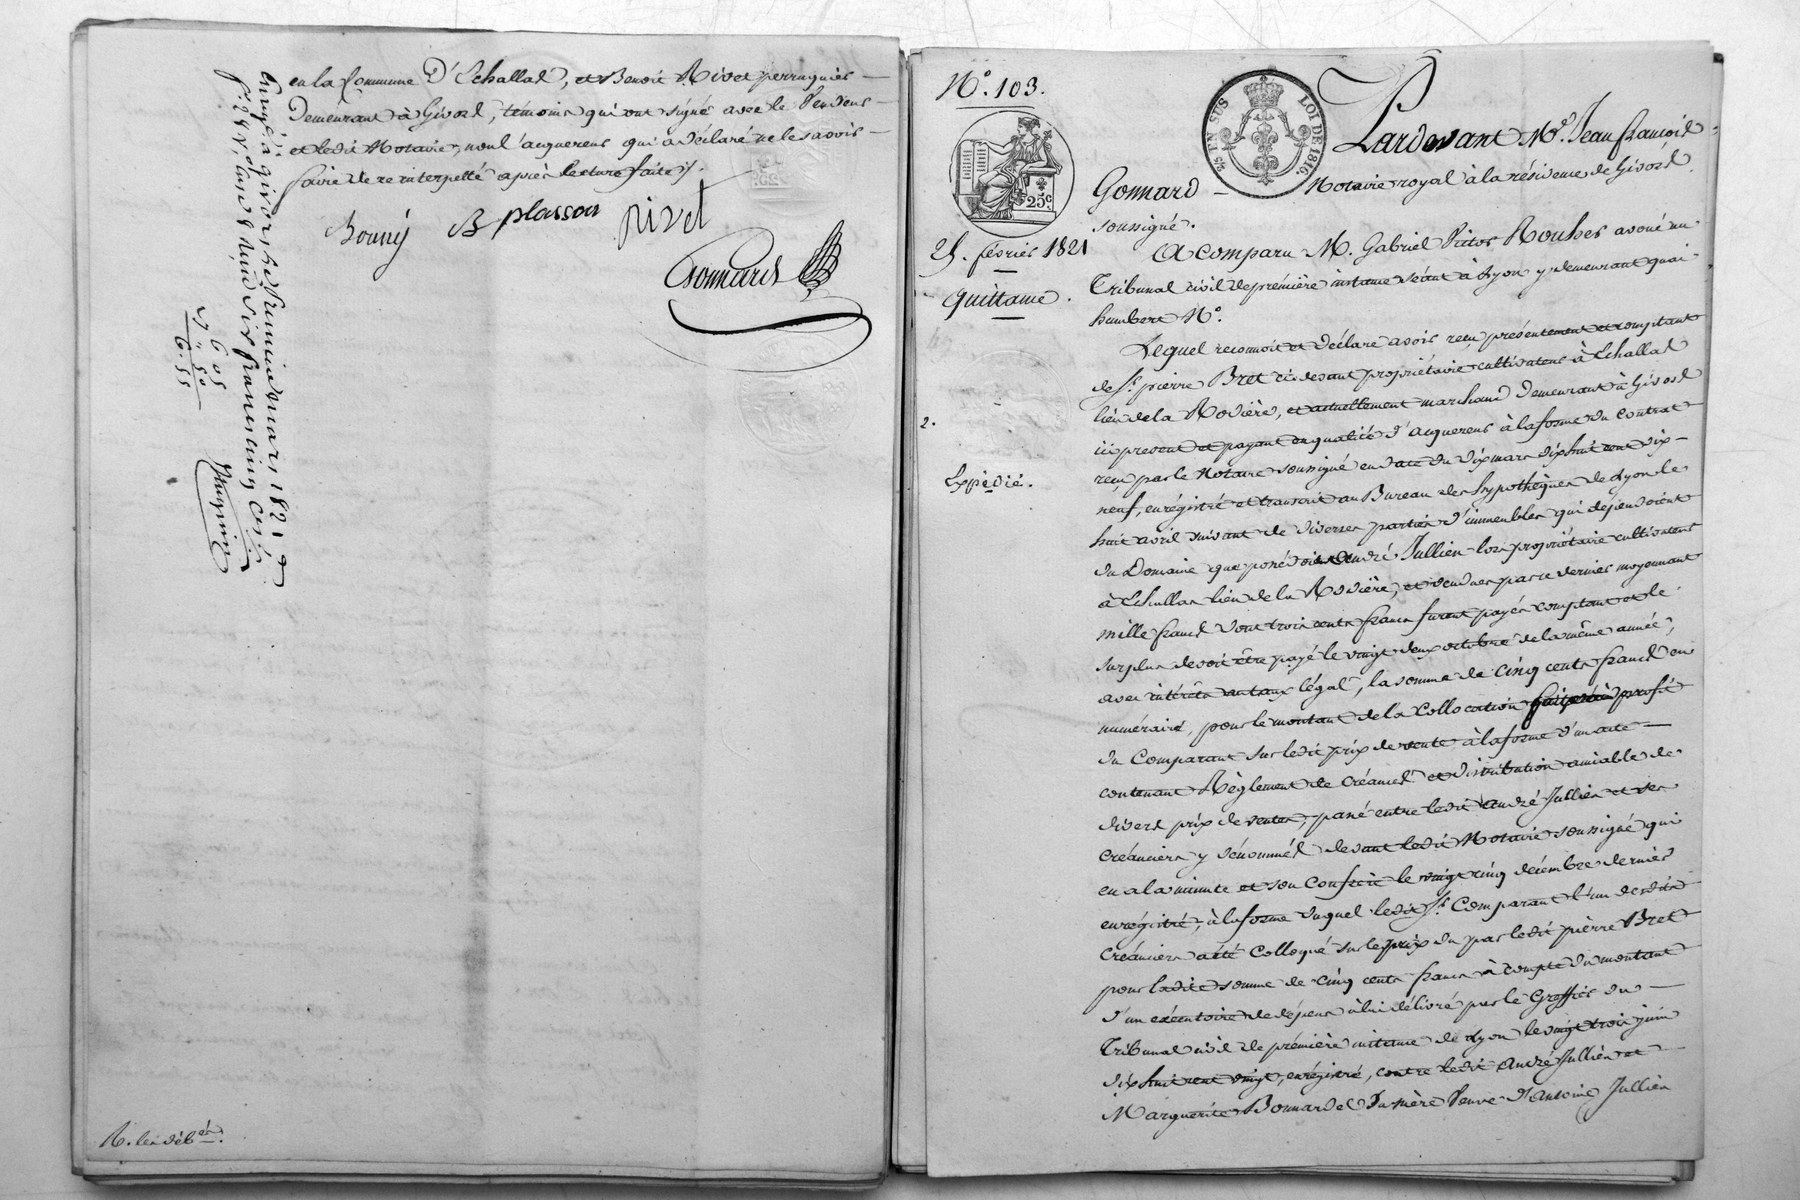 en la Commune D'Echallas, et Benoit Rivet perruquier
Demeurant à Givors, témoins qui ont signé avec le Vendeur
et ledit Notaire, non l'acquereur qui a déclaré ne le savoir
faire de ce interpellé après lecture faite /.
Bonny B plasson Rivet
Gonnard
Enregé à givors le huit mars 1821 fo
vingt sept francs cinq ces
6 05
" 50
6.55
R. les déb.és
No. 103.
25 EN SUS
LOI DE 1816.
25c
25. février 1821
Quittance.
2.
Expédié.
Pardevant Me. Jean françois
Gonnard Notaire royal à la résidence de Givors
soussigné.
A comparu M. Gabriel Victor Rouher avoué au
Tribunal civil de première instance séant à Lyon y demeurant quai
humbert No.
Lequel reconnoit et déclare avoir reçu présentement et comptant
de Sr. pierre Bret ci-devant propriétaire cultivateur à Echallas
lieu de la Rodière, et actuellement marchand Demeurant à Givors
ici present et payant en qualité d'acquereur à la forme du contrat
reçu par le Notaire soussigné en date du dix mars dix huit cent dix-
neuf, enrégistré et transcrit au Bureau des hypothèques de Lyon le
huit avril suivant de diverses parties d'immeubles qui dependoient
du Domaine que possédoit André Jullien lors propriétaire cultivateur
à Echallas lieu de la Rodière, et vendues par ce dernier moyennant
mille francs dont trois cents francs furent payés comptant et le
surplus devoit être payé le vingt deux octobre de la même année,
avec intérêts au taux légal, la somme de cinq cents francs en
numéraire, pour le montant de la collocation faite à profit
du Comparant sur ledit prix de vente à la forme d'un acte
contenant Règlement de Créances et distribution amiable de
divers prix de ventes, passé entre ledit André Jullien et ses
Créanciers y dénommés devant ledit Notaire soussigné qui
en a la minute et son Confrère le vingt cinq décembre dernier
enrégistré, à la forme duquel ledit Sr. Comparant l'un desdits
Créanciers a été Colloqué sur le prix du par ledit pierre Bret
pour ladite somme de cinq cents francs à compte du montant
d'un exécutoire de dépens à lui délivré par le Greffier du
Tribunal civil de première instance de Lyon le vingt trois juin
dix huit cent vingt, enrégistré, contre ledit André Jullien et
Marguerite Bonnardel sa mère Veuve d'Antoine Jullien